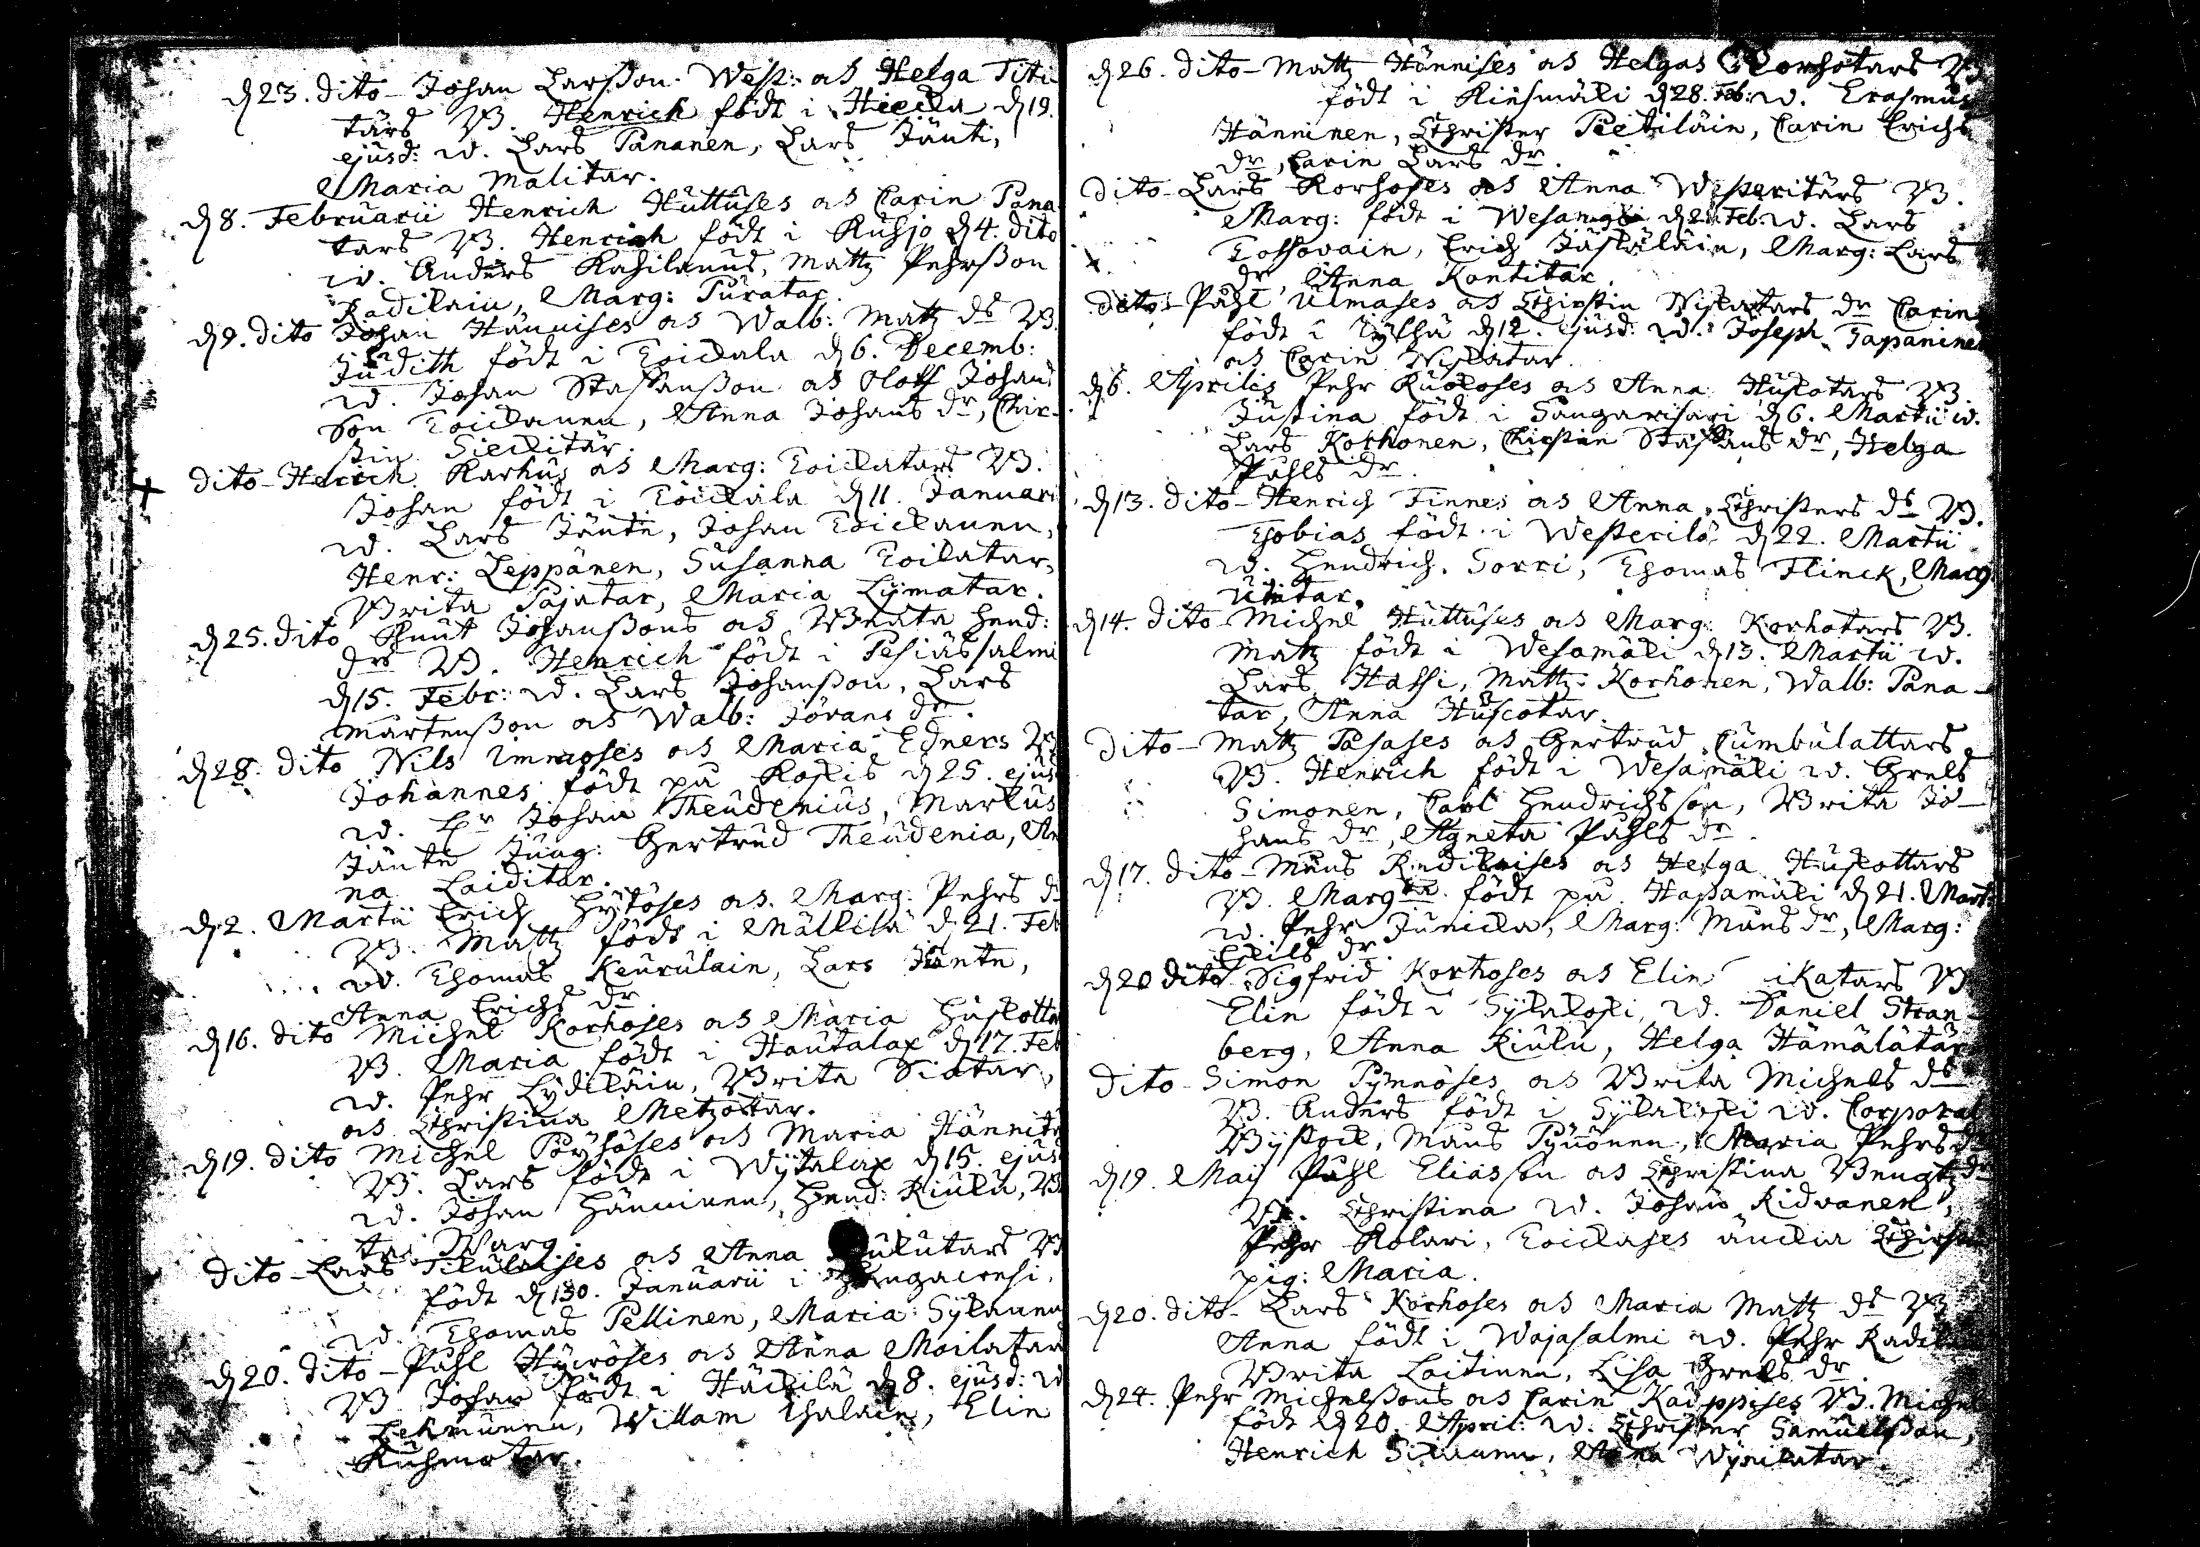 d 23. dito - Johan Larßon West: as Helga Titi
tars B. Henrich födt i Hiecka d 19.
ejusd: w. Lars Pananen, Lars Jänti,
Maria Malitar.
d 8. Februarii Henrich Huttuses as Carin Pana
tars B. Henrich födt i Kuhjo d 4. dito
w. Anders Kahilanus, Mattz Pehrßon
Radilain, Marg: Puratar.
d 9. dito Johan Hännises as Walb: Mattz ds B.
Judith födt i Toickala d 6. Decemb:
w. Johan Staffanßon as Oloff Johans
Son Toickanen, Anna Johans dr, Chir-
stin Sieckitär.
dito - Henrich Karhus as Marg: Toickatars B.
Johan födt i Toickala d 11. Januari
w. Lars Jänte, Johan Toickanen,
Henr: Leppänen, Susanna Toikatar,
Brita Pajatar, Maria Lymatar.
d 25. dito Knut Johanßons as Beata Hend:
drs B. Henrich födt i Pesiässalmi
d 15. Febr: w. Lars Johanßon, Lars
Mårtenßon as Walb: Jörans dr.
d 28. dito Nils Immoses as Maria Edners B
Johannes födt på Koskis d 25. ejus
w. Hr Johan Theudenius, Markus
Jänte Jung: Gertrud Theudenia, An
na Laiditar.
d 2. Martii Erich Hytöses as Marg: Pehrs d
B. Mattz födt i Mällilä d 21. Feb
w. Thomas Keurulain, Lars Jänte,
Anna Erichs dr
d 16. dito Michel Korhoses as Maria Huskotta
B. Maria födt i Hautalax d 17. Feb
w. Pehr Lydiläin, Brita Siatar,
as Christina Metzotar.
d 19. dito Michel Pöyhöses as Maria Hännitä
B. Lars födt i Wytalax d 15. ejus
w. Johan Hänninen, Hend: Kiulu, B
ta Warg.
dito - Lars Tikulaises as Anna ulutars B
födt d 30. Januarii i
w. Thomas Pellinen, Maria Sykanen
d 20. dito - Påhl Hywöses as Anna Moilatar
B. Johan födt i Häckilä d 8. ejusd: w
Lekmunen, Willam Thalain, Elin
Ruhmotar.
d 26. dito - Mattz Hännises as Helgas Korhotars B
födt i Kiesmäki d 28. Feb: w. Erasmus
Hänninen, Christer Pietiläin, Carin Erichs
dr, Carin Lars dr.
dito - Lars Korhoses as Anna Westeritärs B.
Marg: födt i Wesangi d 21. Feb. w. Lars
Tossavain, Erich Jäskäläin, Marg: Lars
dr, Anna Kontitar.
dito - Påhl Ulmases as Chirstin Niskatars dr Carin
födt i Kylhä d 12. ejusd: w. Joseph Tapaninen
as Carin Niskatar
d 6. Aprilis Pehr Ruokoses as Anna Huskotars B.
Justina födt i Sangarisari d 6. Martii w.
Lars Korhonen, Chirstin Staffans dr, Helga
Påhls dr.
d 13. dito - Henrich Finnes as Anna Christers ds B.
Tobias födt i Westerilä d 22. Martii
w. Hendrich Sorri, Thomas Flinck, Marg
Uutar.
d 14. dito - Michel Huttuses as Marg: Korhotars B.
Mattz födt i Wesamäki d 13. Martii w.
Lars Hassi, Mattz Korhonen, Walb: Pana-
tar, Anna Huscotar.
dito - Mattz Pasases as Gertrud Cumbulattars
B. Henrich födt i Wesamäki w. Grels
Simonen, Carl Hendrichsson, Brita Jo-
hans dr, Agneta Påhls dr.
d 17. dito - Måns Radilaises as Helga Huskottars
B. Margta födt på Hassamäki d 21. Mart:
w. Pehr Junicka, Marg: Måns dr, Marg:
Eskils dr.
d 20 dito - Sigfrid Korhoses as Elin ikatars B
Elin födt i Sykäkoski, w. Daniel Stran-
berg, Anna Kiulu, Helga Hämälätär
dito - Simon Pynnöses as Brita Michels ds
B. Anders födt i Sykäkoski w. Corporal
Bystock, Måns Pynönen, Maria Pehrs dr
d 19. Maij Påhl Eliasson as Christina Bengtz dr
B. Christina w. Johan Kidvanen,
Pehr Kolari, Toickases änckia Chirstin
pig: Maria.
d 20. dito - Lars Korhoses as Maria Mattz ds B
Anna födt i Wajasalmi w. Pehr Radik
Brita Laitinen, Lisa Grels dr.
d 24. Pehr Michelßons as Carin Kauppises B. Michel
födt d 20. April: w. Christer Samuelßon,
Henrich Sikanen, Anna Wynikatar.